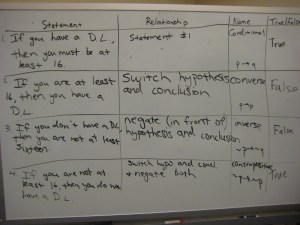 Statement Relationship Name True/False
1. If you have a DL, Statement #1 Conditional True
then you must be at p→q
least 16.
2. If you are at least Switch hypothesis converse False
16, then you have a and conclusion
DL. q→p
3. If you don't have a DL, negate (in front of inverse False
then you are not at least hypothesis and conclusion
sixteen. ~p→~q
4. If you are not at switch hypo and concl contrapositive True
least 16, then you do not & negate both ~q→~p
have a DL.